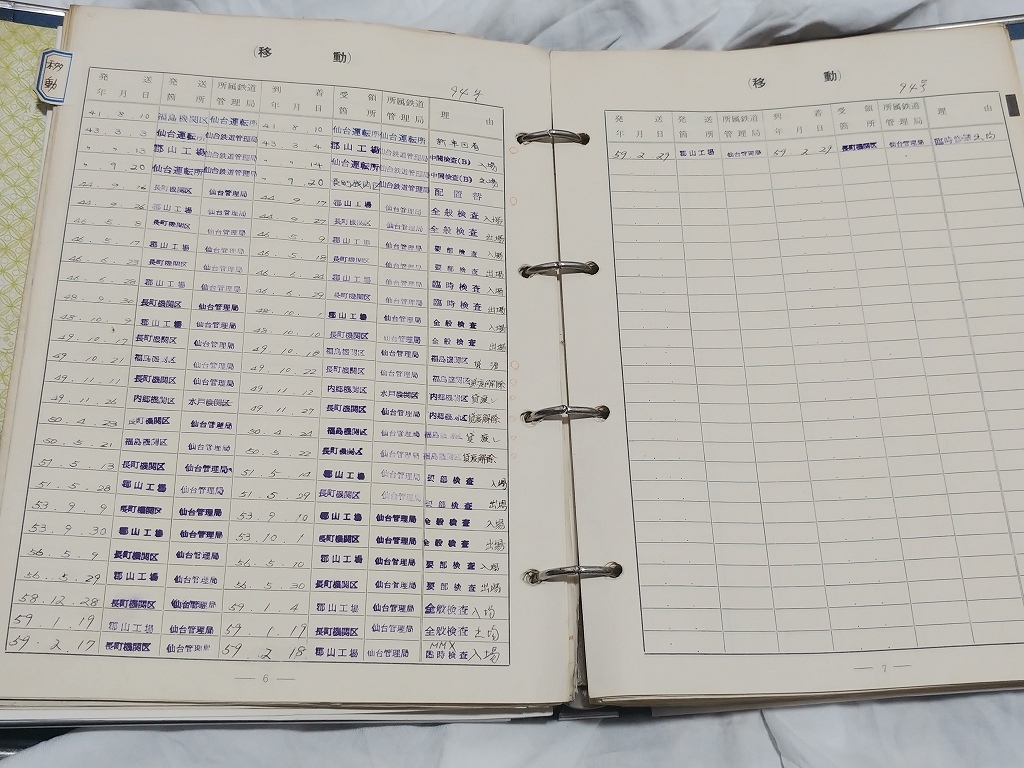 移動
(移動)
944
発送年月日 発送箇所 所属鉄道管理局 到着年月日 受領箇所 所属鉄道管理局 理由
41.8.10 福島機関区 仙台運転所 41.8.10 仙台運転所 仙台運転所 新車回着
43.3.3 仙台運転所 仙台鉄道管理局 43.3.4 郡山工場 仙台鉄道管理局 中間検査(B) 入場
〃 〃 13 郡山工場 仙台鉄道管理局 〃 〃 14 仙台運転所 仙台鉄道管理局 中間検査(B) 出場
〃 9.20 仙台運転所 仙台鉄道管理局 〃 9.20 長町機関区 仙台鉄道管理局 配置替
44.9.16 長町機関区 仙台管理局 44.9.17 郡山工場 仙台管理局 全般検査 入場
44.9.26 郡山工場 仙台管理局 44.9.27 長町機関区 仙台管理局 全般検査 出場
46.5.8 長町機関区 仙台管理局 46.5.9 郡山工場 仙台管理局 要部検査 入場
46.5.17 郡山工場 仙台管理局 46.5.18 長町機関区 仙台管理局 要部検査 出場
46.6.23 長町機関区 仙台管理局 46.6.24 郡山工場 仙台管理局 臨時検査 入場
46.6.28 郡山工場 仙台管理局 46.6.29 長町機関区 仙台管理局 臨時検査 出場
48.9.30 長町機関区 仙台管理局 48.10.1 郡山工場 仙台管理局 全般検査 入場
48.10.9 郡山工場 仙台管理局 48.10.10 長町機関区 仙台管理局 全般検査 出場
49.10.17 長町機関区 仙台管理局 49.10.18 福島機関区 仙台管理局 福島機関区 貸渡
49.10.21 福島機関区 仙台管理局 49.10.22 長町機関区 仙台管理局 福島機関区 貸渡解除
49.11.11 長町機関区 仙台管理局 49.11.12 内郷機関区 水戸管理局 内郷機関区 貸渡し
49.11.26 内郷機関区 水戸管理局 49.11.27 長町機関区 仙台管理局 内郷機関区 貸渡解除
50.4.23 長町機関区 仙台管理局 50.4.24 福島機関区 仙台管理局 福島機関区 貸渡し
50.5.21 福島機関区 仙台管理局 50.5.22 長町機関区 仙台管理局 福島機関区 貸渡解除
51.5.13 長町機関区 仙台管理局 51.5.14 郡山工場 仙台管理局 要部検査 入場
51.5.28 郡山工場 仙台管理局 51.5.29 長町機関区 仙台管理局 要部検査 出場
53.9.9 長町機関区 仙台管理局 53.9.10 郡山工場 仙台管理局 全般検査 入場
53.9.30 郡山工場 仙台管理局 53.10.1 長町機関区 仙台管理局 全般検査 出場
56.5.9 長町機関区 仙台管理局 56.5.10 郡山工場 仙台管理局 要部検査 入場
56.5.29 郡山工場 仙台管理局 56.5.30 長町機関区 仙台管理局 要部検査 出場
58.12.28 長町機関区 仙台管理局 59.1.4 郡山工場 仙台管理局 全般検査 入場
59.1.19 郡山工場 仙台管理局 59.1.19 長町機関区 仙台管理局 全般検査 出場
59.2.17 長町機関区 仙台管理局 59.2.18 郡山工場 仙台管理局 MMX 臨時検査 入場
— 6 —
(移動)
945
発送年月日 発送箇所 所属鉄道管理局 到着年月日 受領箇所 所属鉄道管理局 理由
59.2.29 郡山工場 仙台管理局 59.2.29 長町機関区 仙台管理局 臨時検査 出場
— 7 —